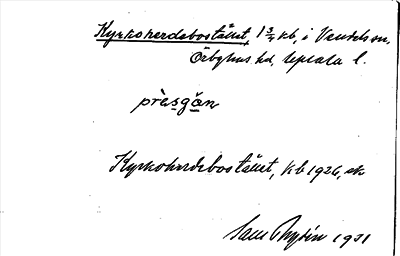 Kyrkoherdebostället, 1 3/4 kb, i Vendels sn,
Örbyhus hd, Uppsala l.
prèsgǎn
Kyrkoherdebostället, kb 1926, ek
Sam Rydén 1931